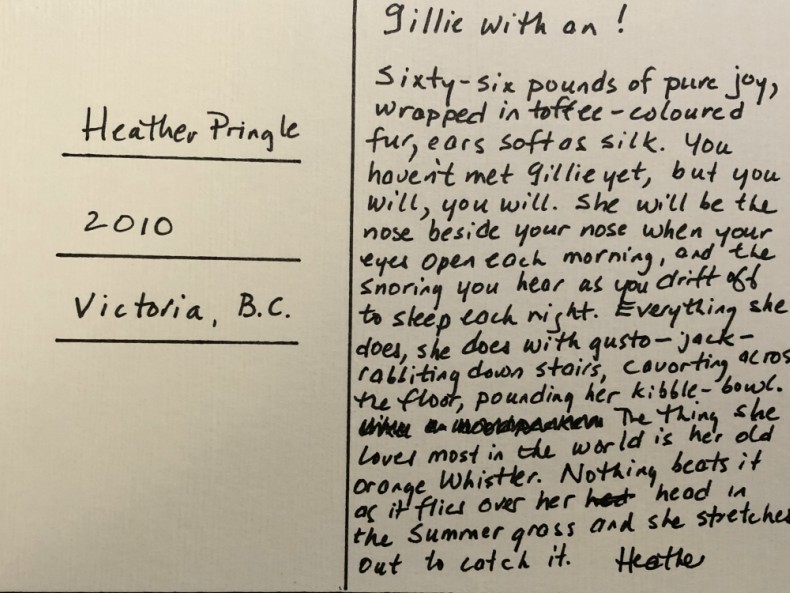 Heather Pringle
2010
Victoria, B.C.
Gillie with an !
Sixty-six pounds of pure joy,
wrapped in toffee-coloured
fur, ears soft as silk. You
haven't met Gillie yet, but you
will, you will. She will be the
nose beside your nose when your
eyes open each morning, and the
snoring you hear as you drift off
to sleep each night. Everything she
does, she does with gusto-jack-
rabbiting down stairs, cavorting across
the floor, pounding her kibble-bowl.
The thing she
loves most in the world is her old
orange Whistler. Nothing beats it
as it flies over her head in
the summer grass and she stretches
out to catch it. Heathe